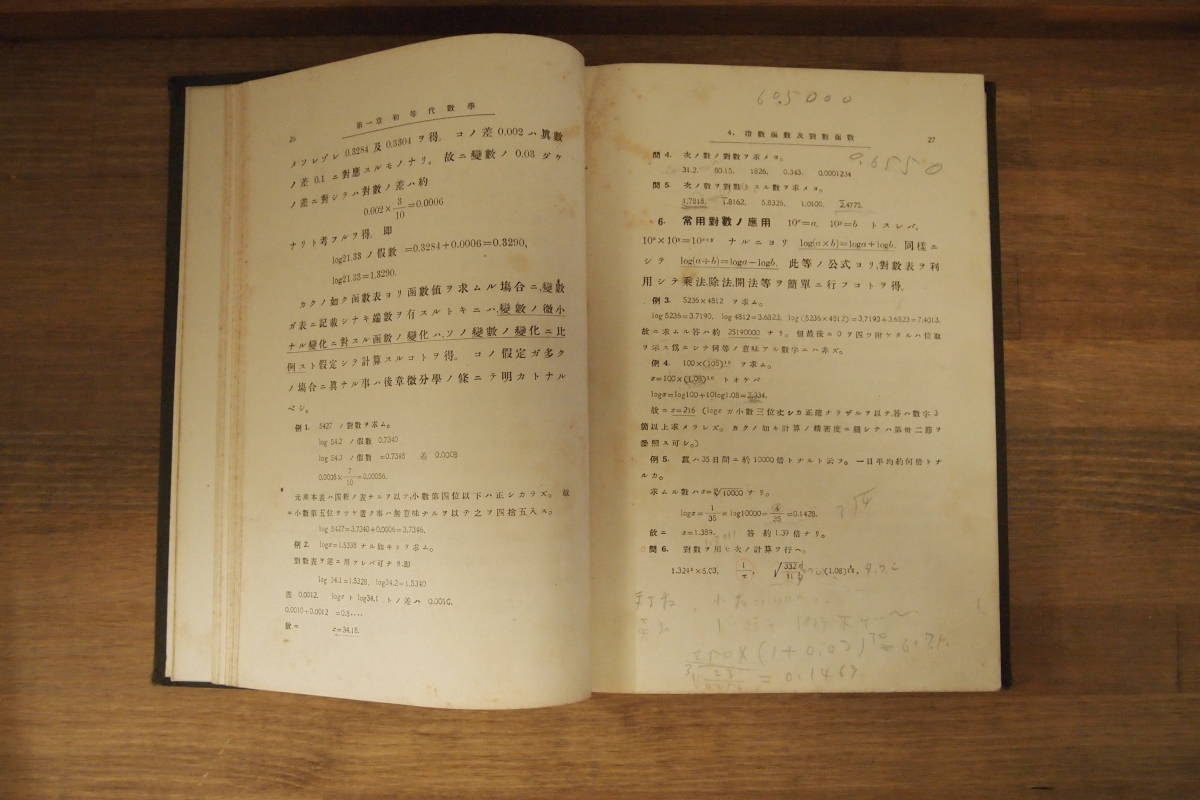 26
第一章 初等代數學
夫々レゾレ 0.3284 及 0.3304 ヲ得。 コノ差 0.002 ハ眞數
ノ差 0.1 ニ對應スルモノナリ。 故ニ變數ノ 0.03 ダケ
ノ差ニ對シテハ對數ノ差ハ約
0.002×3/10=0.0006
ナリト考フルヲ得。 即
log21.33 ノ假數 =0.3284+0.0006=0.3290,
log21.33=1.3290.
カクノ如ク函數表ヨリ函數値ヲ求ムル場合ニ、變數
ガ表ニ記載シナキ端數ヲ有スルトキニハ、變數ノ微小
ナル變化ニ對スル函數ノ變化ハ、ソノ變數ノ變化ニ比
例スト假定シテ計算スルコトヲ得。 コノ假定ガ多ク
ノ場合ニ眞ナル事ハ後章微分學ノ條ニテ明カトナル
ベシ。
例1. 5427 ノ對數ヲ求ム。
log 54.2 ノ假數 0.7340
log 54.3 ノ假數 =0.7348 差 0.0008
0.0008×7/10=0.00056.
元來本表ハ四桁ノ表ナルヲ以テ、小數第四位以下ハ正シカラズ。 故
ニ小數第五位ヲツケ置ク事ハ無意味ナルヲ以テ之ヲ四捨五入ス。
log 5427=3.7340+0.0006=3.7346.
例2. logx=1.5338 ナル如キxヲ求ム。
對數表ヲ逆ニ用フレバ可ナリ、即
log 34.1=1.5328, log34.2=1.5340
差 0.0012. logx ト log34.1 トノ差ハ 0.0010.
0.0010÷0.0012 =0.8····
故ニ x=34.18.
60.5000
4. 指數函數及對數函數 27
問4. 次ノ數ノ對數ヲ求メヨ。
31.2, 80.15, 1826, 0.343, 0.0001234
0.6550
問5. 次ノ數ヲ對數トスル數ヲ求メヨ。
3.7818, 1.8162, 5.8326, 1.0100, 2.4772.
6. 常用對數ノ應用 10ˣ=a, 10ʸ=b トスレバ、
10ˣ×10ʸ=10ˣ⁺ʸ ナルニヨリ log(a×b)=loga+logb. 同樣ニ
シテ log(a÷b)=loga−logb. 此等ノ公式ヨリ、對數表ヲ利
用シテ乘法、除法、開法等ヲ簡單ニ行フコトヲ得。
例3. 5236×4812 ヲ求ム。
log 5236=3.7190, log 4812=3.6823, log (5236×4812)=3.7190+3.6823=7.4013,
故ニ求ムル答ハ約 25190000 ナリ。 但最後ニ0ヲ四ツ附ケタルハ位取
ヲ示ス爲ニシテ何等ノ意味アル數字ニハ非ズ。
例4. 100×(1.08)¹⁰ ヲ求ム。
x=100×(1.08)¹⁰ トオケバ
logx=log100+10log1.08=2.334,
故ニ x=216 (logx ガ小數三位迄シカ正確ナラザルヲ以テ、答ハ數字3
箇以上求メラレズ。 カクノ如キ計算ノ精密度ニ關シテハ第卅二節ヲ
參照ス可シ。)
例5. 蠶ハ35日間ニ約10000倍トナルト云フ。 一日平均約何倍トナ
ルカ。
求ムル數ハ x=³⁵√10000 ナリ。
logx=1/35 × log10000=4/35=0.1428.
故ニ x=1.389. 答 約 1.39 倍ナリ。
問6. 對數ヲ用ヒ次ノ計算ヲ行ヘ。
(1+0.03)
= 0.1467